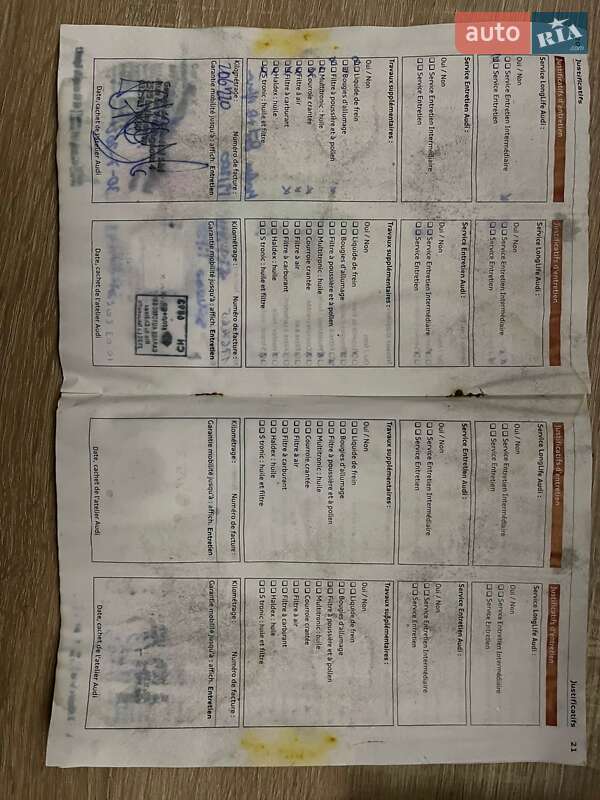 auto RIA .com
Justificatifs
Justificatifs d'entretien
Service LongLife Audi :
Oui / Non
Service Entretien Intermédiaire
Service Entretien
Service Entretien Audi :
Oui / Non
Service Entretien Intermédiaire
Service Entretien
Travaux supplémentaires :
Oui / Non
Liquide de frein
Bougies d'allumage
Filtre à poussière et à pollen
Multitronic : huile
Courroie crantée
Filtre à air
Filtre à carburant
Haldex : huile
S tronic : huile et filtre
Kilométrage :
Numéro de facture :
Garantie mobilité jusqu'à : affich. Entretien
Date, cachet de l'atelier Audi
Justificatifs d'entretien
Service LongLife Audi :
Oui / Non
Service Entretien Intermédiaire
Service Entretien
Service Entretien Audi :
Oui / Non
Service Entretien Intermédiaire
Service Entretien
Travaux supplémentaires :
Oui / Non
Liquide de frein
Bougies d'allumage
Filtre à poussière et à pollen
Multitronic : huile
Courroie crantée
Filtre à air
Filtre à carburant
Haldex : huile
S tronic : huile et filtre
Kilométrage :
Numéro de facture :
Garantie mobilité jusqu'à : affich. Entretien
Date, cachet de l'atelier Audi
Justificatifs d'entretien
Service LongLife Audi :
Oui / Non
Service Entretien Intermédiaire
Service Entretien
Service Entretien Audi :
Oui / Non
Service Entretien Intermédiaire
Service Entretien
Travaux supplémentaires :
Oui / Non
Liquide de frein
Bougies d'allumage
Filtre à poussière et à pollen
Multitronic : huile
Courroie crantée
Filtre à air
Filtre à carburant
Haldex : huile
S tronic : huile et filtre
Kilométrage :
Numéro de facture :
Garantie mobilité jusqu'à : affich. Entretien
Date, cachet de l'atelier Audi
Justificatifs
21
Justificatifs d'entretien
Service LongLife Audi :
Oui / Non
Service Entretien Intermédiaire
Service Entretien
Service Entretien Audi :
Oui / Non
Service Entretien Intermédiaire
Service Entretien
Travaux supplémentaires :
Oui / Non
Liquide de frein
Bougies d'allumage
Filtre à poussière et à pollen
Multitronic : huile
Courroie crantée
Filtre à air
Filtre à carburant
Haldex : huile
S tronic : huile et filtre
Kilométrage :
Numéro de facture :
Garantie mobilité jusqu'à : affich. Entretien
Date, cachet de l'atelier Audi